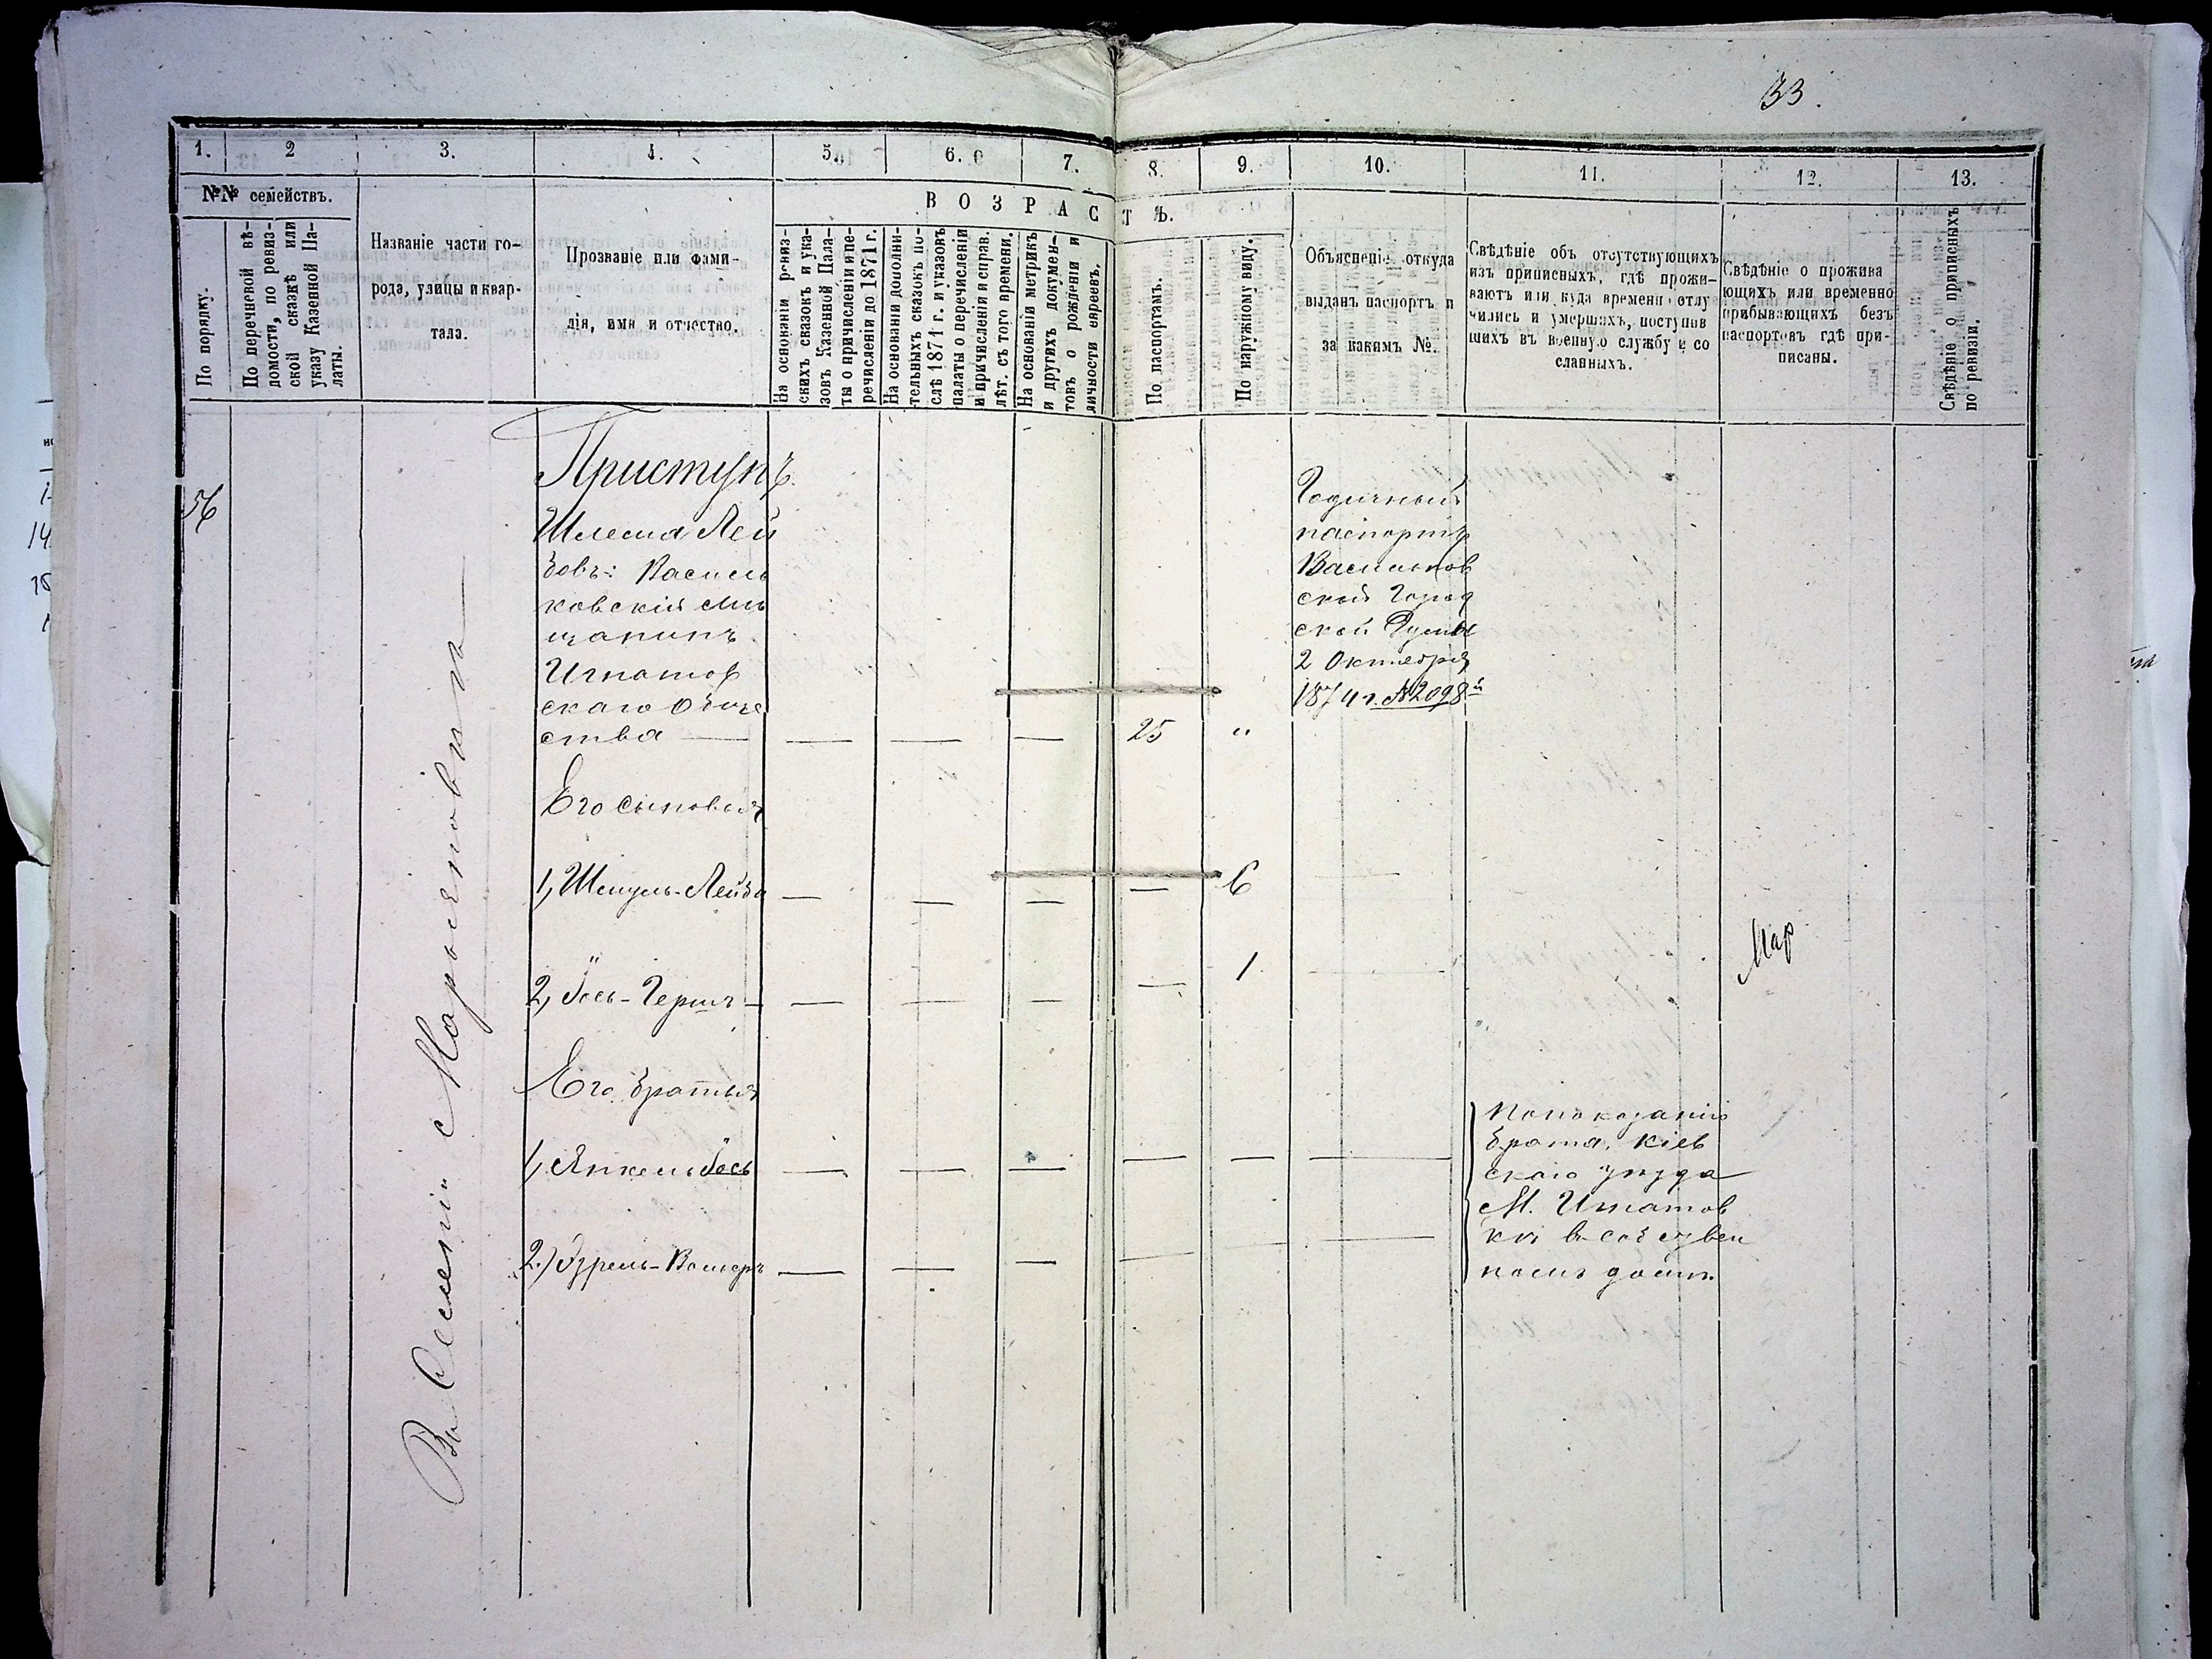 33.
1.
2
3.
4.
5.
6.
7.
8.
9.
10.
11.
12.
13.
№№ семействъ.
По порядку.
По перечневой вѣ-
домости, по ревиз-
ской сказкѣ или
указу Казенной Па-
латы.
Названіе части го-
рода, улицы и квар-
тала.
Прозваніе или фами-
лія, имя и отчество.
ВОЗРАСТЪ.
На основаніи ревиз-
скихъ сказокъ и ука-
зовъ Казенной Пала-
ты о причисленіи и пе-
речисленіи до 1871 г.
На основаніи дополни-
тельныхъ сказокъ по-
слѣ 1871 г. и указовъ
палаты о перечисленіи
и причисленіи и справ.
лѣт. съ того времени.
На основаніи метрикъ
и другихъ докумен-
товъ о рожденіи и
личности евреевъ.
По паспортамъ.
По наружному виду.
Объясненіе откуда
выданъ паспортъ и
за какимъ №.
Свѣдѣніе объ отсутствующихъ
изъ приписныхъ, гдѣ прожи-
ваютъ или куда временно отлу
чились и умершихъ, поступив
шихъ въ военную службу и со
сланныхъ.
Свѣдѣніе о прожива
ющихъ или временно
прибывающихъ безъ
паспортовъ гдѣ при-
писаны.
Свѣдѣніе о приписныхъ
по ревизіи.
56
Въ Селеніи с Марьяновка
Приступъ.
Шлема Лей
бовъ: Василь
ковскій мѣ
щанинъ
Игнатов
скаго Обще
ства — — — — 25 "
Годичный
паспортъ
Васильков
ской Город
ской Думы
2 Октября
1874 г. №2098й
Его сыновья
1, Шмуль-Лейба — — — — 6 —
2, Іось-Гершъ — — — — — 1 —
Мар
Его братья
1, Янкель Іось — — — — — —
2.) Сруль-Волько — — — — —
По показанію
брата, Кіев
скаго уѣзда
М. Игнатов
ки въ собствен
номъ домѣ.